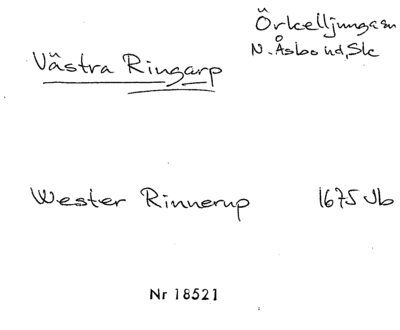 Örkelljunga sn
N. Åsbo hd, Sk
Västra Ringarp
Wester Rinnerup 1675 Jb
Nr 18521